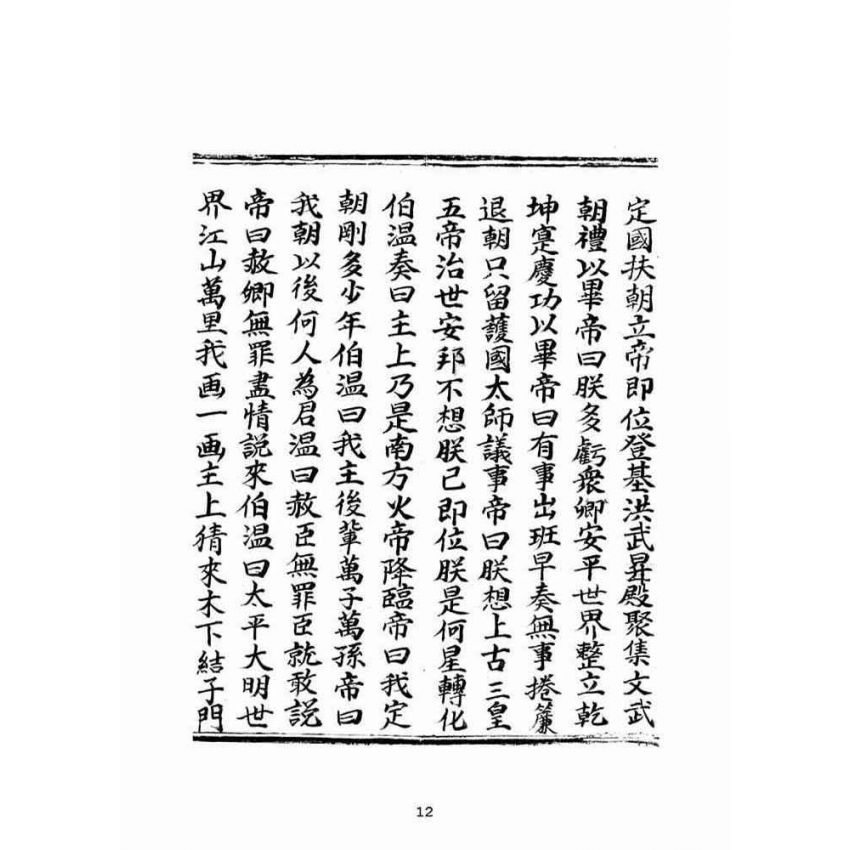 定國扶朝立帝即位登基洪武昇殿聚集文武
朝禮以畢帝曰朕多虧衆卿安平世界整立乾
坤寔慶功以畢帝曰有事出班早奏無事捲簾
退朝只留護國太師議事帝曰朕想上古三皇
五帝治世安邦不想朕已即位朕是何星轉化
伯温奏曰主上乃是南方火帝降臨帝曰我定
朝剛多少年伯温曰我主後輩萬子萬孫帝曰
我朝以後何人為君温曰赦臣無罪臣就敢説
帝曰赦卿無罪盡情説來伯温曰太平大明世
界江山萬里我画一画主上猜來木下結子門
12